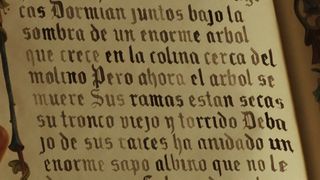 cas Dormian juntos bajo la
sombra de un enorme arbol
que crece en la colina cerca del
molino Pero ahora el arbol se
muere Sus ramas estan secas
su tronco viejo y torrido Deba
jo de sus raices ha anidado un
enorme sapo albino que no le